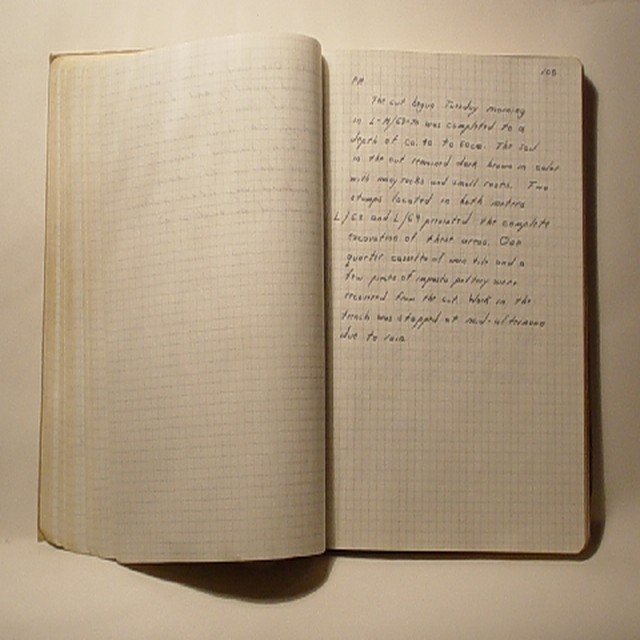 PM
The cut begun Tuesday morning
in L-M/68-70 was completed to a
depth of ca. 40 to 60cm. The soil
in the cut remained dark brown in color
with many rocks and small roots. Two
stumps located in both meters
L/68 and L/69 prevented the complete
excavation of these areas. One
quarter cassetta of was tile and a
few pieces of impasto pottery were
recovered from the cut. Work in the
trench was stopped at mid-afternoon
due to rain.